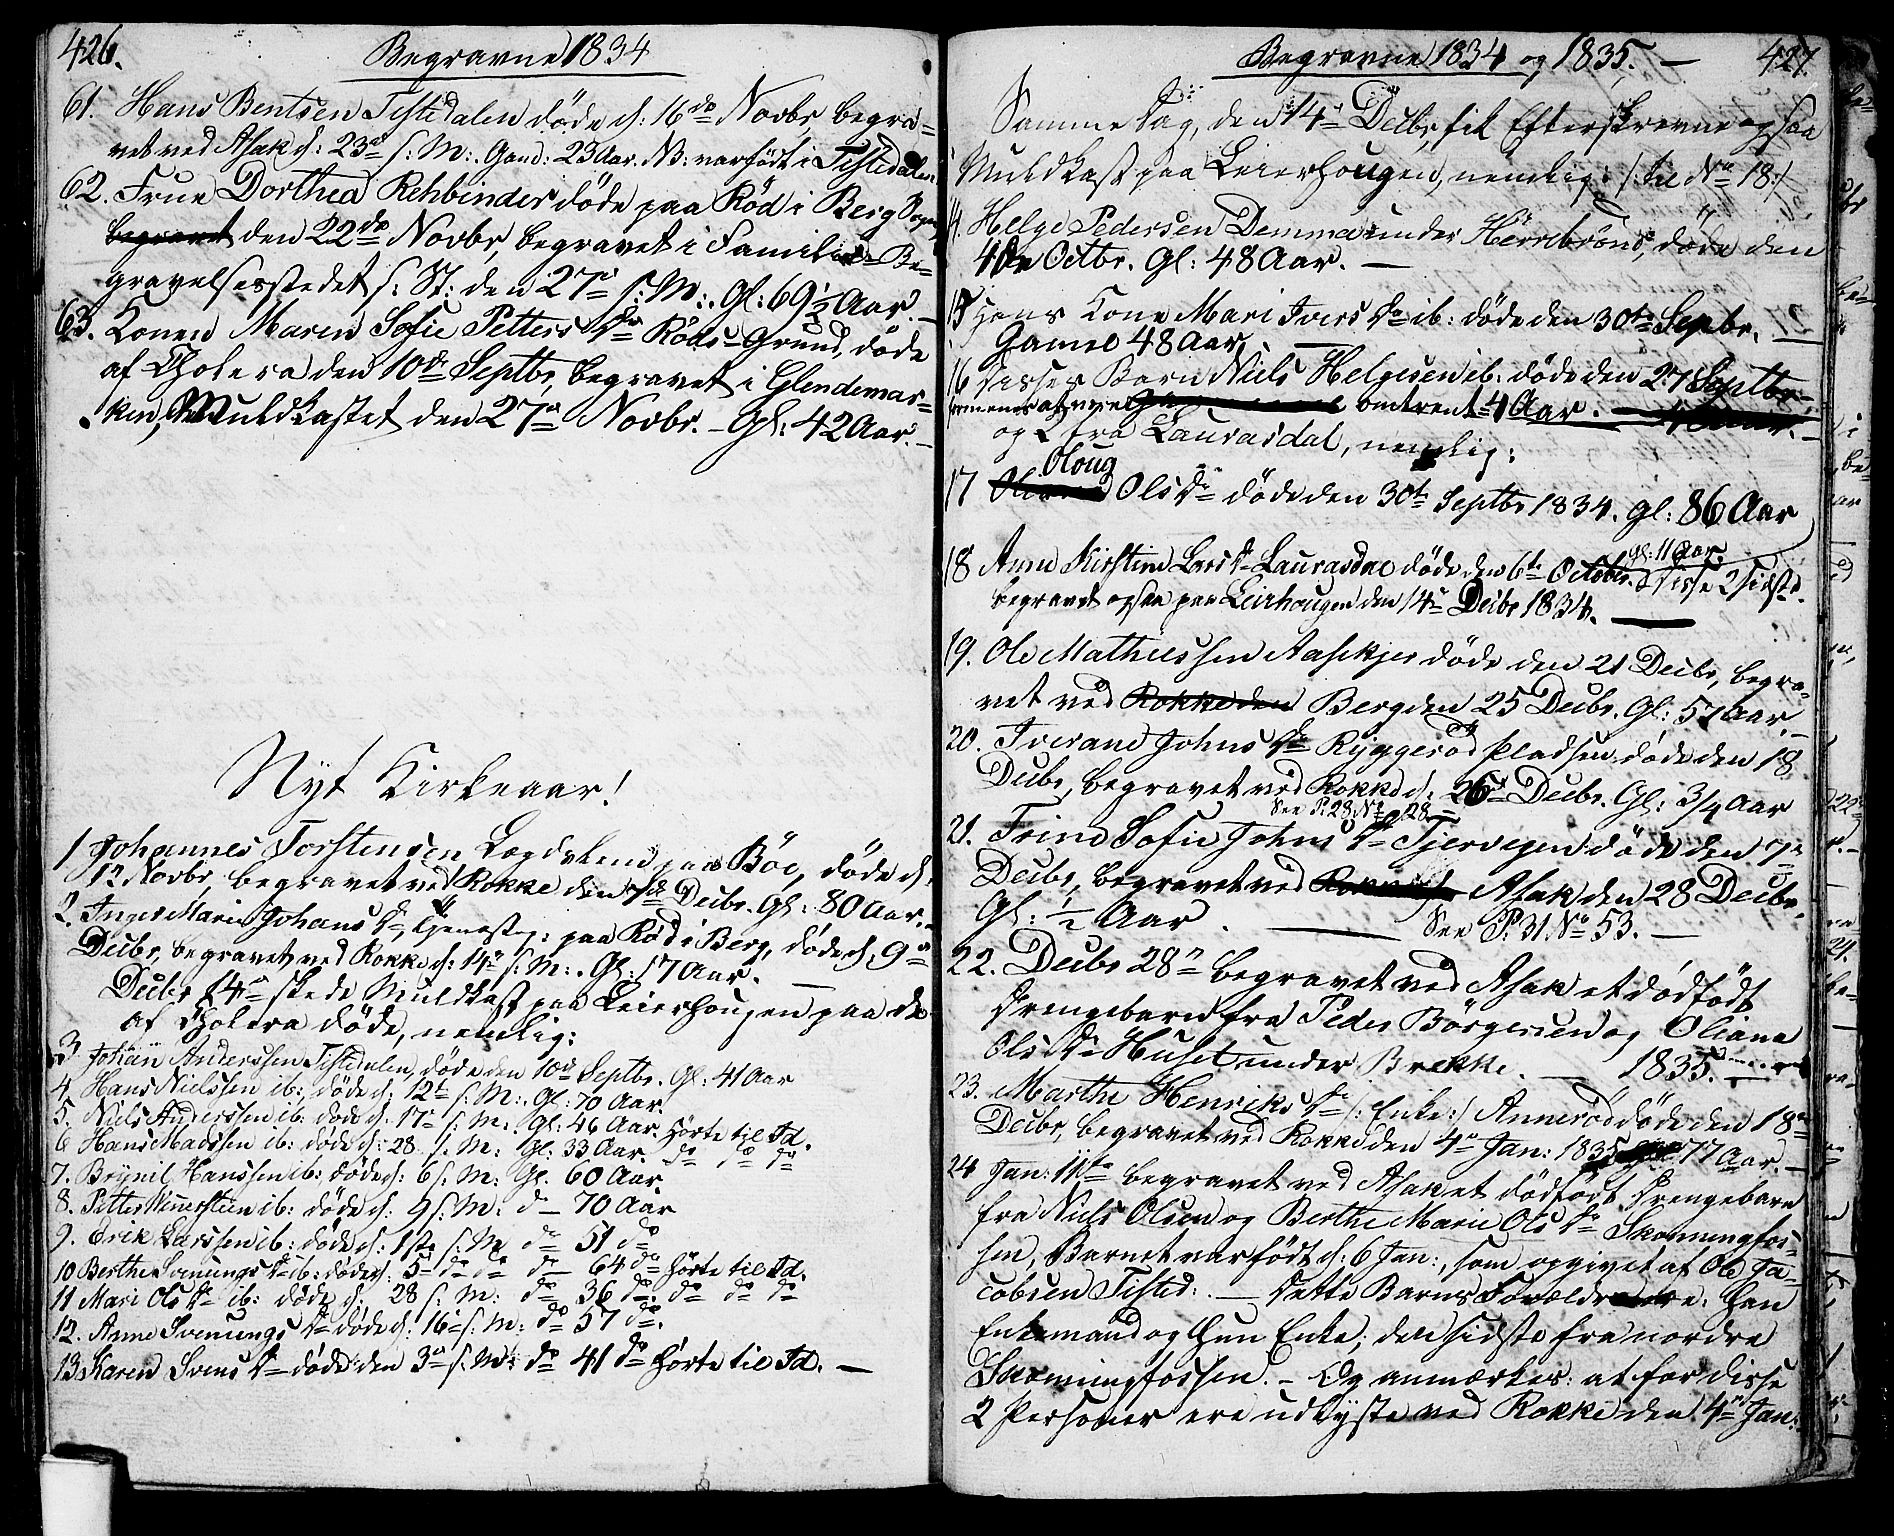 426.
Begravne 1834
61. Hans Bentsen Tistedalen døde d: 16de Novbr, begra=
vet ved Asak d: 23de s: M: Gand: 23 Aar. NB: var født i Tistedalen.
62. Frue Dorthea Rehbinder døde paa Rød i Berg Sogn
begravet den 22de Novbr, begravet i Familie=Be=
gravelsesstedet s: St: den 27de s: M: Gl: 69½ Aar. —
63. Konen Maren Sofie Petters Dr Røds=Grund, døde
af Cholera den 10de Septbr, begravet i Glendemar=
ken, Muldkastet den 27de Novbr. — Gl: 42 Aar. —
Nyt Kirkeaar!
1. Johannes Torstensen Lægdslem paa Böe, døde d:
1te Novbr, begravet ved Rokke den 7de Decbr. Gl: 80 Aar. —
2. Inger Marie Johans Dr, Tjenestep: paa Rød i Berg, døde d: 9de
Decbr, begravet ved Rokke d: 14de s: M: Gl: 17 Aar. —
Decbr 14de skede Muldkast paa Leierhougen paa de
af Cholera døde, nemlig:
3 Johan Anderssen Tistedalen, døde den 10de Septbr. Gl: 41 Aar
4. Hans Nielssen ib: døde d: 12te s: M: Gl: 70 Aar.
5. Niels Anderssen ib: døde d: 17de s: M: Gl: 46 Aar. hørte til Id.
6 Hans Madssen ib: døde d: 28 s: M: Gl: 33 Aar do do do
7. Brynil Hanssen ib: døde d: 6 s: M: Gl. 60 Aar
8. Petter Winersteen ib: døde d: 9 s: M: do 70 Aar
9. Erik Larssen ib: døde d: 1ste s: M do 51 do
10 Berthe Svenungs Dr ib: døde d: 5 do do do 64 do hørte til Id.
11 Mari Ols Dr ib: døde d: 28 s: M: do 36 do. do do do
12. Anne Svenungs Dr døde d: 16 s: M: do 57 do.
13 Karen Svens Dr døde den 3de s: M: do 41 do hørte til Id. —
Begravne 1834 og 1835. — 427.
Samme Dag, den 14de Decbr, fik Efterskrevne ogsaa
Muldkast paa Leierhougen, nemlig: /: til No 18:/
14. Helge Pedersen Demma under Herrebrøns, døde den
4de Octbr. Gl: 48 Aar. —
15 Hans Kone Mari Ivers Dr ib: døde den 30te Septbr.
Gamel 48 Aar. —
16 Disses Barn Niels Helgesen ib: døde den 27 Septbr.
formenes at være omtrent 4 Aar. —
og 2 fra Laurasdal, nemlig:
17 Oloug Ols Dr døde den 30te Septbr 1834. Gl: 86 Aar
18 Anne Kirstine Lars Dr Laurasdal døde den 6te Octobr. Gl: 11 Aar. Disse 2 sidste
begravet ogsaa paa Leirhougen den 14de Decbr 1834. —
19. Ole Mathiessen Aaskjer døde den 21 Decbr, begra=
vet ved Rokke den Berg den 25 Decbr. Gl: 57 Aar. —
20. Iverane Johns Dr Ryggerød Pladsen døde den 18
Decbr, begravet ved Rokke d: 26de Decbr. Gl: 3/4 Aar
See P: 28 No 28 —
21. Trine Sofie Johns Dr Tjervegen døde den 7de
Decbr, begravet ved Asak den 28 Decbr.
Gl: ½ Aar. — See P: 31 No 53. —
22. Decbr 28de begravet ved Asak et dødfødt
Drengebarn fra Peder Börgersen og Oliana
Ols Dr Huset under Brekke. — 1835.
23. Marthe Henriks Dr /: Enke:/ Annerød døde den 18de
Decbr, begravet ved Rokke den 4de Jan: 1835 77 Aar. —
24 Jan: 11te begravet ved Asak et dødfødt Drengebarn
fra Niels Olsen og Berthe Marie Ols Dr Skonningfos=
sen, Barnet var født d: 6 Jan:, som opgivet af Ole Ja=
cobsen Tisted:. — Dette Barns Forældre ere: han
Enkemand og hun Enke; den sidste fra nordre
Skonningfossen. — Og anmærkes: at for disse
2 Personer ere udlyste ved Rokke den 4de Jan: